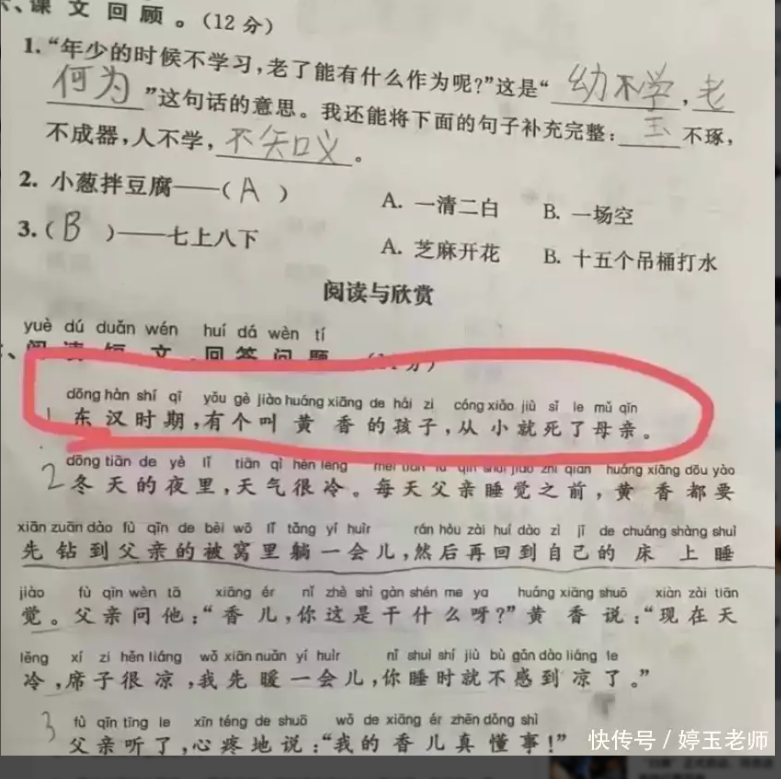 、课文回顾。(12分)
1.“年少的时候不学习,老了能有什么作为呢?”这是“幼不学,老
何为”这句话的意思。我还能将下面的句子补充完整:玉不琢,
不成器,人不学,不知义。
2. 小葱拌豆腐——( A ) A. 一清二白 B. 一场空
3.( B )——七上八下 A. 芝麻开花 B. 十五个吊桶打水
阅读与欣赏
yuè dú duǎn wén huí dá wèn tí
、阅读短文,回答问题。
dōng hàn shí qī yǒu gè jiào huáng xiāng de hái zi cóng xiǎo jiù sǐ le mǔ qīn
1 东汉时期,有个叫黄香的孩子,从小就死了母亲。
dōng tiān de yè lǐ tiān qì hěn lěng měi tiān fù qīn shuì jiào zhī qián huáng xiāng dōu yào
2 冬天的夜里,天气很冷。每天父亲睡觉之前,黄香都要
xiān zuān dào fù qīn de bèi wō lǐ tǎng yí huìr rán hòu zài huí dào zì jǐ de chuáng shàng shuì
先钻到父亲的被窝里躺一会儿,然后再回到自己的床上睡
jiào fù qīn wèn tā xiāng ér nǐ zhè shì gàn shén me ya huáng xiāng shuō xiàn zài tiān
觉。父亲问他:“香儿,你这是干什么呀?”黄香说:“现在天
lěng xí zi hěn liáng wǒ xiān nuǎn yí huìr nǐ shuì shí jiù bù gǎn dào liáng le
冷,席子很凉,我先暖一会儿,你睡时就不感到凉了。”
fù qīn tīng le xīn téng de shuō wǒ de xiāng ér zhēn dǒng shì
3 父亲听了,心疼地说:“我的香儿真懂事!”
快传号 / 婷玉老师